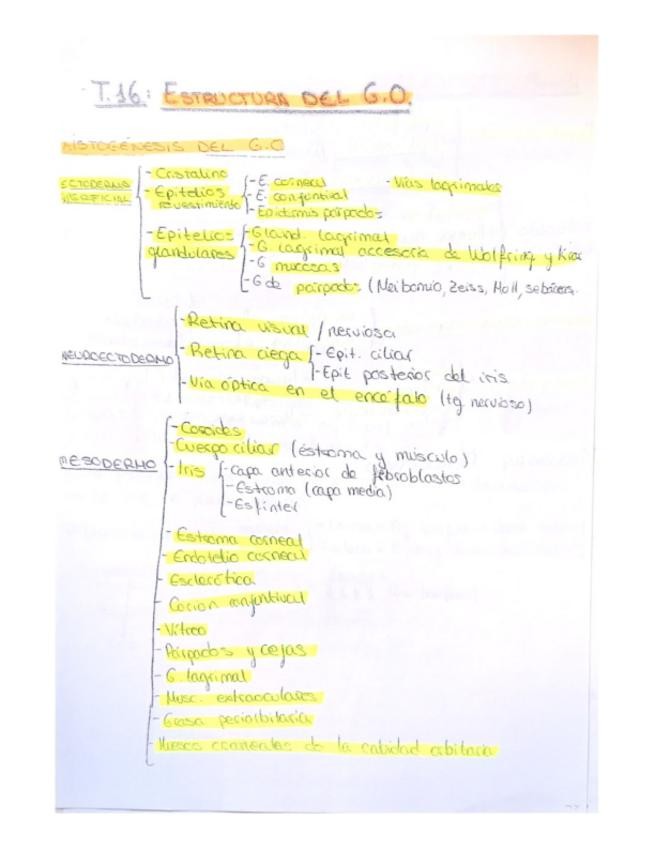 T.16: ESTRUCTURA DEL G.O.
HISTOGÉNESIS DEL G.O
ECTODERMO SUPERFICIAL
- Cristalino
- Epitelios revestimiento
- E. corneal
- E. conjuntival
- Epidermis párpados
- Vías lagrimales
- Epitelios glandulares
- Gland. lagrimal
- G lagrimal accesoria de Wolfring y
- G mucosas
- G de párpados (Meibomio, Zeiss, Moll, sebáceas.
NEUROECTODERMO
- Retina visual / nerviosa
- Retina ciega
- Epit. ciliar
- Epit posterior del iris
- Vía óptica en el encéfalo (tg nervioso)
MESODERMO
- Coroides
- Cuerpo ciliar (estroma y músculo)
- Iris
- capa anterior de fibroblastos
- Estroma (capa media)
- Esfínter
- Estroma corneal
- Endotelio corneal
- Esclerótica
- Corion conjuntival
- Vítreo
- Párpados y cejas
- G. lagrimal
- Musc. extraoculares
- Grasa periorbitaria
- Huesos craneales de la cabidad orbitaria